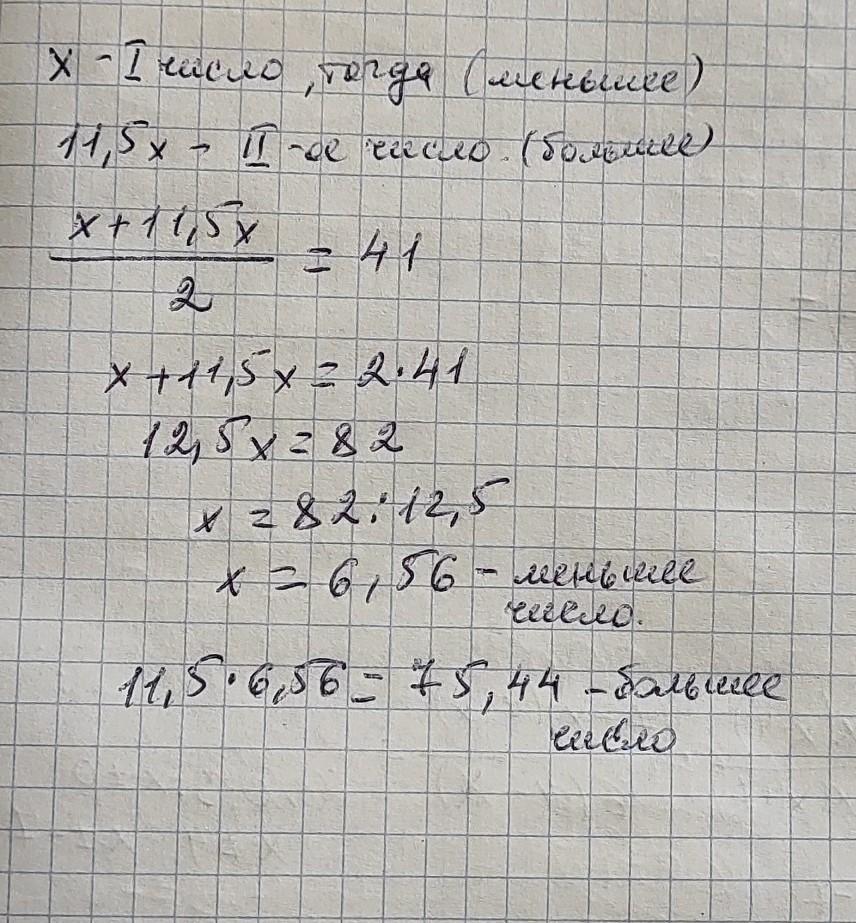 x - I число, тогда (меньшее)
11,5x - II-ое число. (большее)
x+11,5x
= 41
2
x+11,5x=2·41
12,5x=82
x=82:12,5
x=6,56 - меньшее
число.
11,5·6,56=75,44 - большее
число